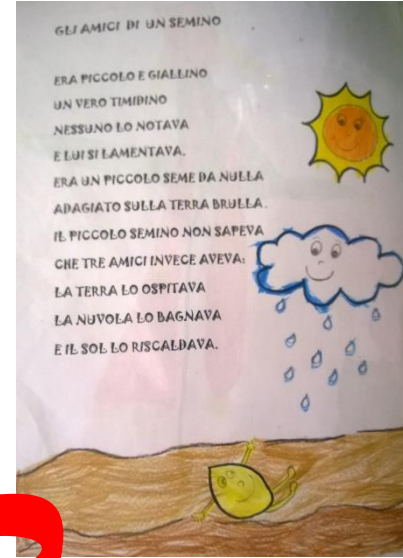 GLI AMICI DI UN SEMINO
ERA PICCOLO E GIALLINO
UN VERO TIMIDINO
NESSUNO LO NOTAVA
E LUI SI LAMENTAVA.
ERA UN PICCOLO SEME DA NULLA
ADAGIATO SULLA TERRA BRULLA.
IL PICCOLO SEMINO NON SAPEVA
CHE TRE AMICI INVECE AVEVA:
LA TERRA LO OSPITAVA
LA NUVOLA LO BAGNAVA
E IL SOL LO RISCALDAVA.